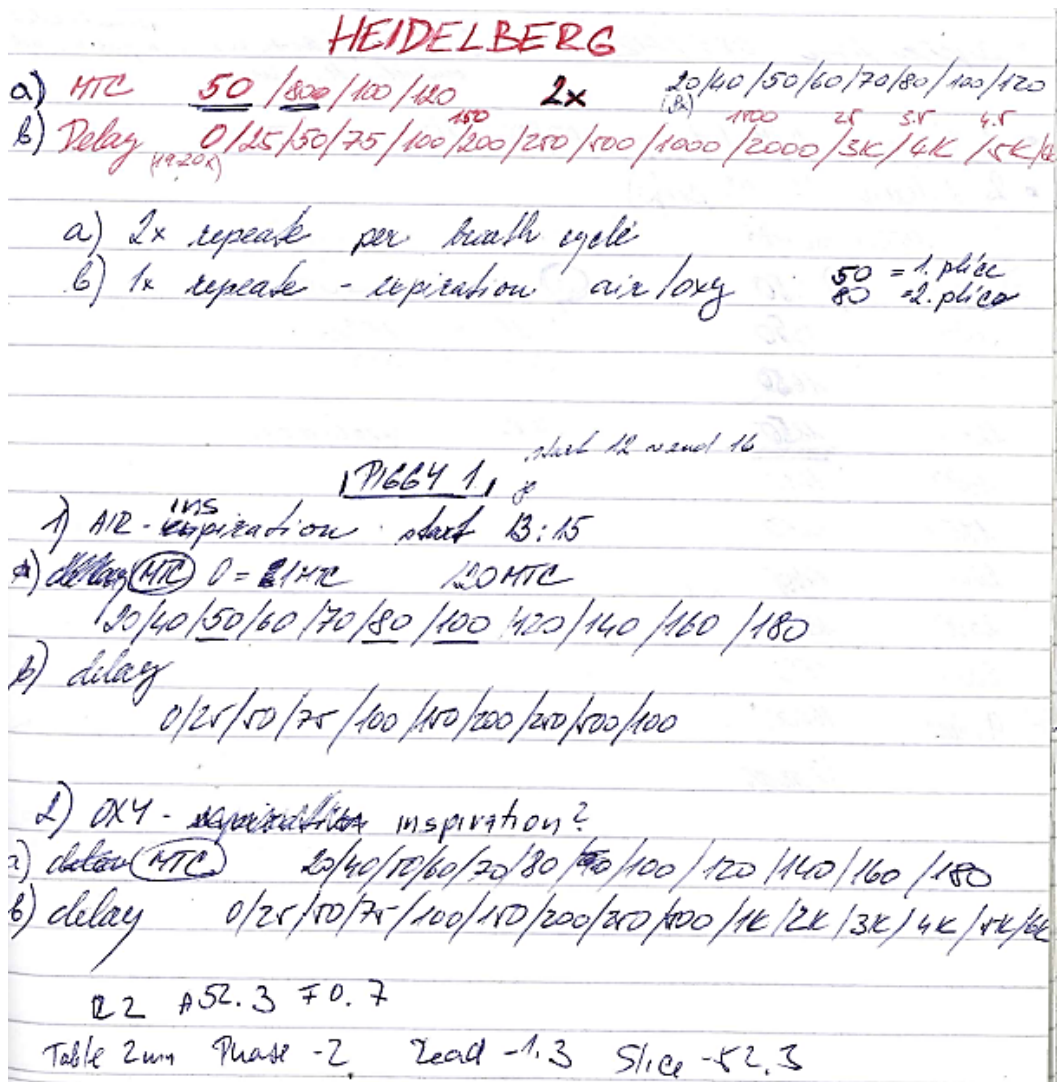 HEIDELBERG
a) MTC 50 / 80 / 100 / 120 2x 20/40/50/60/70/80/100/120
(8x) 150 1500 2.5 3.5 4.5
b) Delay 0/25/50/75/100/200/250/500/1000/2000/3K/4K/5K/6K
(19-20x)
a) 2x repeate per breath cycle
b) 1x repeate - expiration air/oxy 50 = 1. plíce
80 = 2. plíce
start 12 end 16
PIGGY 1
1) AIR - inspiration start 13:15
a) MTC 0 = 1MTC 120MTC
20/40/50/60/70/80/100/120/140/160/180
b) delay
0/25/50/75/100/150/200/250/500/100
2) OXY - inspiration?
a) MTC 20/40/50/60/70/80/100/120/140/160/180
b) delay 0/25/50/75/100/150/200/250/500/1K/2K/3K/4K/5K/6K
R2 A52.3 F0.7
Table 2mm Phase -2 Read -1.3 Slice -52.3